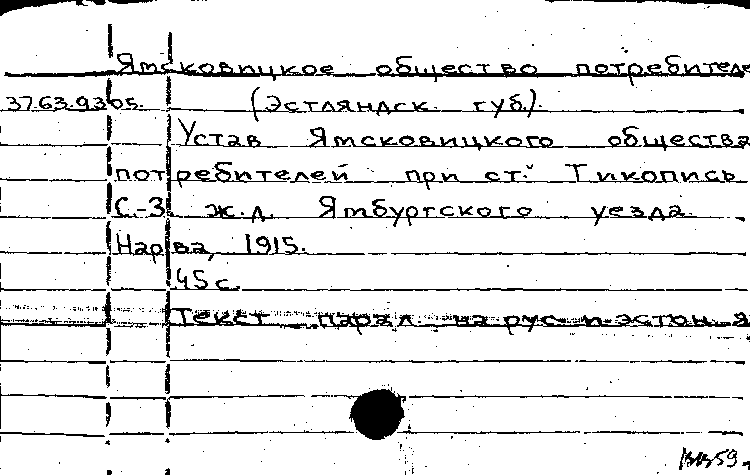 Ямсковицкое общество потребителе
3763.9305. (Эстляндск. губ.).
Устав Ямсковицкого общества
потребителей при ст. Тикопись
С.-З. ж.д. Ямбургского уезда.
Нарва, 1915.
45 с.
Текст парал. на рус. и эстон. я